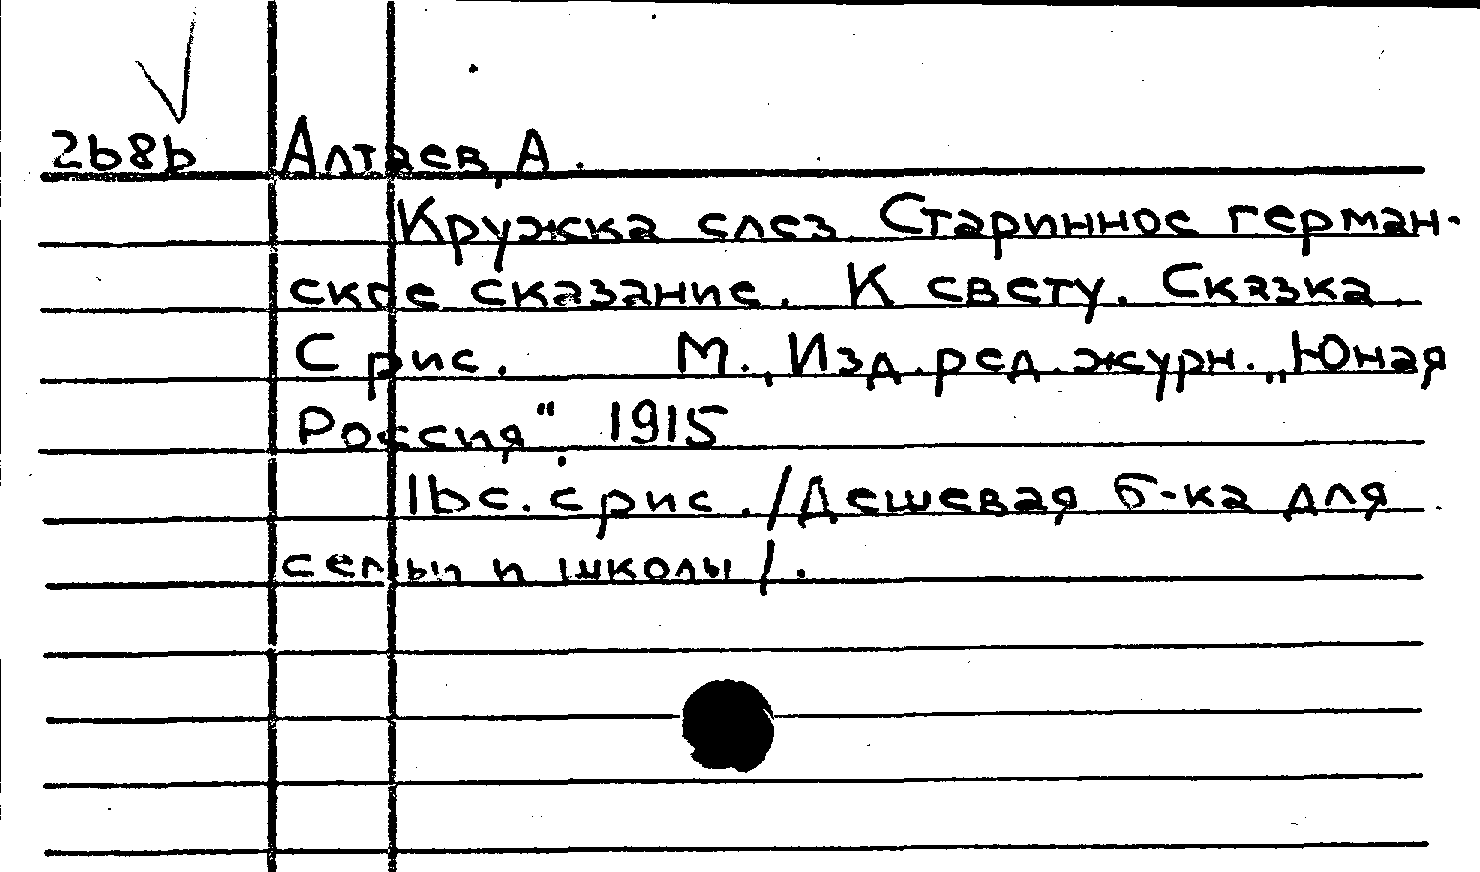 2686 Алтаев, А.
Кружка слез. Старинное герман-
ское сказание. К свету. Сказка.
С рис. М., Изд. ред. журн. „Юная
Россия“. 1915
16 с. с рис. /Дешевая б-ка для
семьи и школы/.